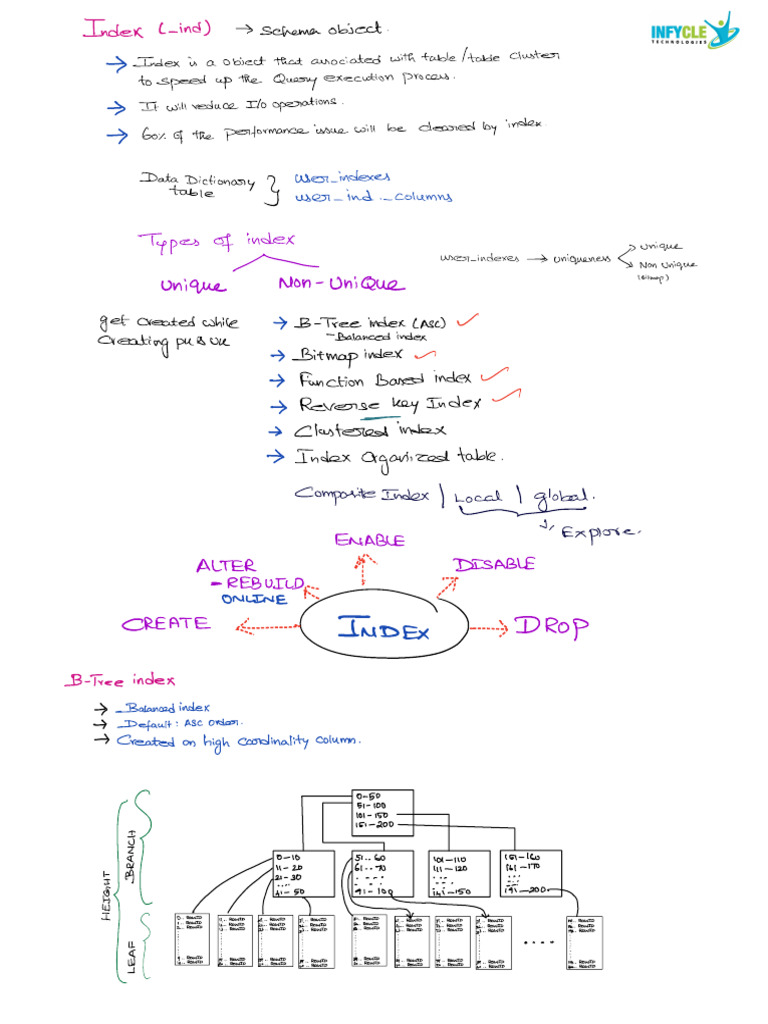 Index (_ind) → Schema object.
INFYCLE
TECHNOLOGIES
→ Index is a object that associated with table/table cluster
to speed up the Query execution process.
→ It will reduce I/O operations.
→ 60% of the performance issue will be cleared by index
Data Dictionary
table
user_indexes
user_ind_columns
Types of index
user_indexes → uniqueness
unique
Non Unique
(Bitmap)
Unique
Non-Unique
get created while
Creating PK & UK
→ B-Tree index (ASC)
- Balanced index
→ Bitmap index
→ Function Based index
→ Reverse Key Index
→ Clustered index
→ Index Organized table.
Composite Index | Local | global.
Explore.
ENABLE
ALTER
- REBUILD
ONLINE
DISABLE
CREATE
INDEX
DROP
B-Tree index
→ Balanced index
→ Default: ASC order.
→ Created on high Cardinality column.
0-50
51-100
101-150
151-200
HEIGHT
BRANCH
LEAF
0-10
11-20
21-30
41-50
51..60
61..70
91-100
101-110
111-120
141-150
151-160
161-170
191-200